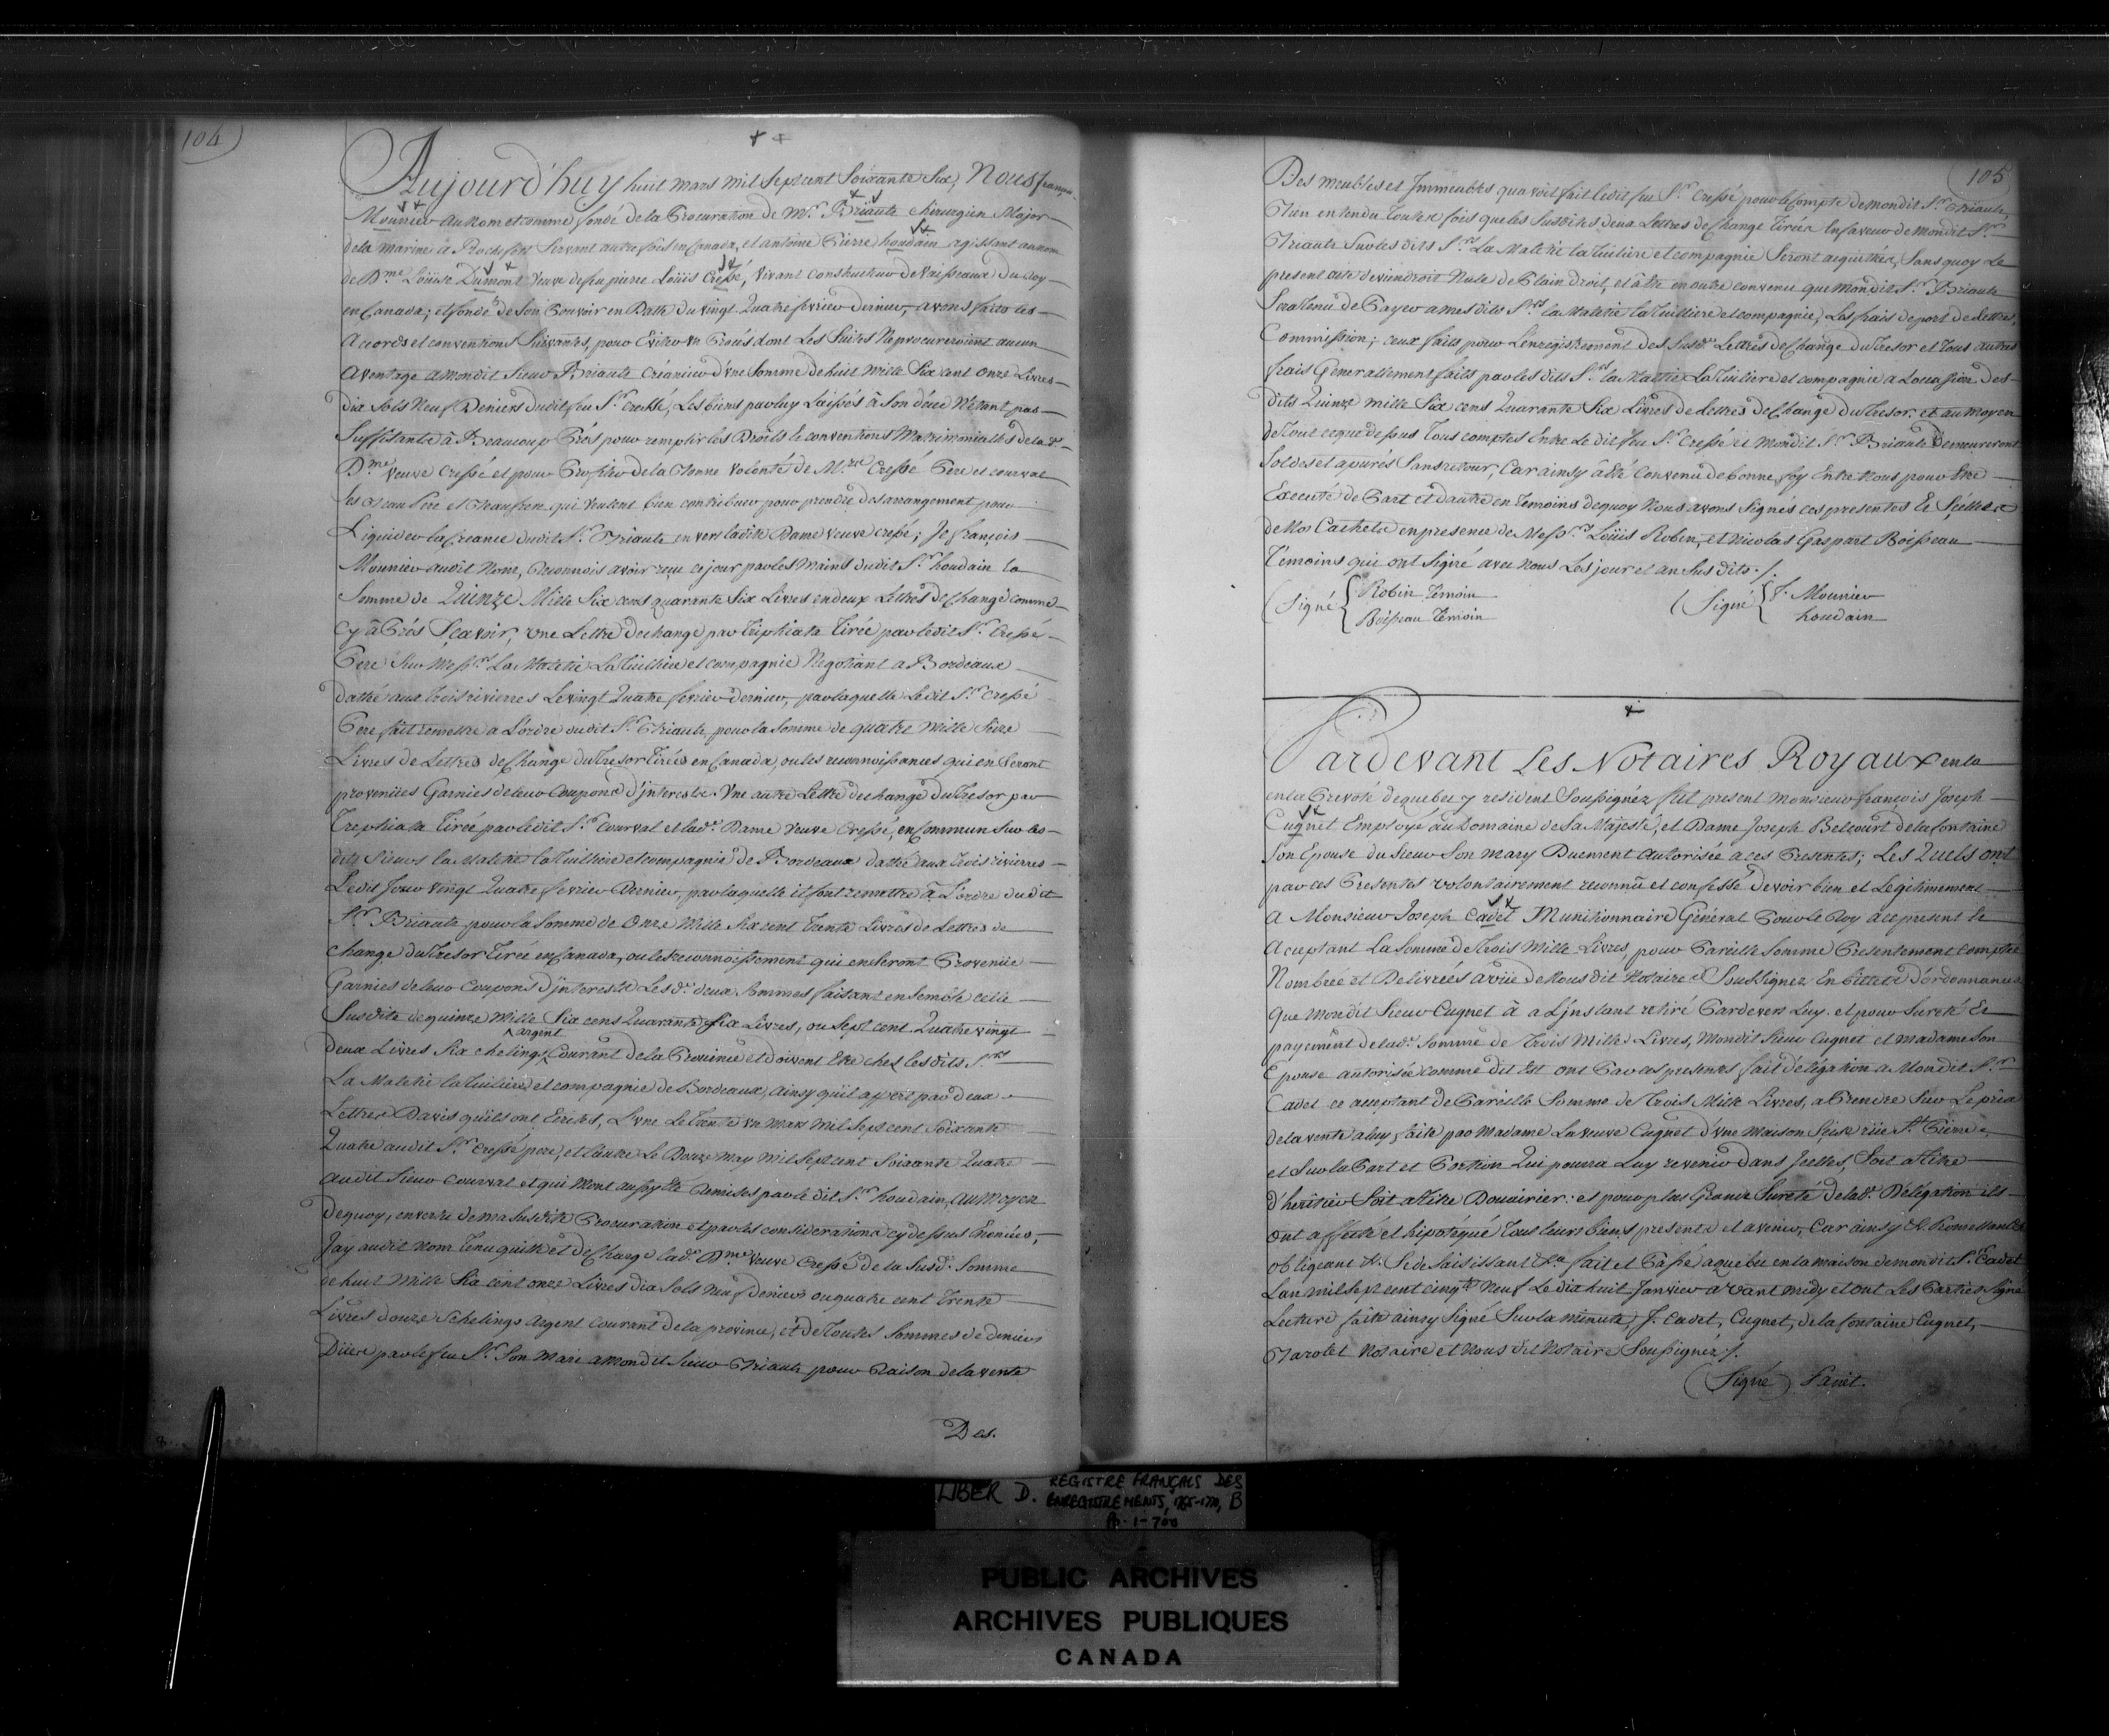 104
Aujourd'huy huit mars mil sept cent soixante six, Nous françois
Mounier au nom et comme fondé de la Procuration de Mr. Briault chirurgien Major
de la marine à Rochefort servant autrefois en Canada, et antoine Pierre houdain agissant au nom
de Dme. Loüise Dumont veuve de feu pierre Loüis Cressé, vivant constructeur de Vaisseaux du Roy
en Canada; et fondé de son Pouvoir en Datte du vingt Quatre fevrier dernier, avons faits les
Accords et conventions Suivantes, pour Eviter un Procés dont Les Suites Ne procureroient aucun
Aventage a mondit Sieur Briault Créancier d'une Somme de huit mille Six cent onze Livres
dix Sols Neuf Deniers dudit feu Sr. Cressé, Les biens par luy Laissés à Son décé N'étant pas
Suffisants à Beaucoup Prés pour remplir les Droits & conventions Matrimonialles de lad.
Dme. veuve Cressé et pour Profiter de la Bonne volonté de Mrs. Cressé Pere et courval
ses Beau Pere et Beaufrere qui veulent bien contribuer pour prendre des arrangement pour
Liquider la Creance dudit Sr. Briault envers ladite Dame veuve cressé; Je françois
Mounier audit Nom, Reconnois avoir reçu ce jour par les Mains dudit Sr. houdain la
Somme de Quinze Mille Six cens quarante Six Livres en deux Lettres de Change comme
Cy âPrés Sçavoir, une Lettre de change par Triplicata Tirée par ledit Sr. Cressé
Pere Sur Messrs. La Maletie La Tuiliere et compagnie Negotiant a Bordeaux
dattée aux trois rivierres Le vingt Quatre fevrier dernier, par laquelle Ledit Sr. Cressé
Pere fait remettre a L'ordre dudit Sr. Briault pour la Somme de quatre mille Seize
Livres de Lettres de Change du Tresor Tirées en Canada, ou les reconnoissances qui en Seront
provenües Garnies de leur Coupons d'jnterests. Une autre Lettre de change du Tresor par
Treplicata Tirée par ledit Sr. Courval et lade. Dame veuve Cressé, en Commun Sur les
dits Sieurs la Maletie la Tuilliere et compagnie de Bordeaux dattée aux trois rivierres
Ledit Jour vingt Quatre fevrier Dernier, par laquelle il font remettre à L'ordre du dit
Sr. Briault pour la Somme de Onze Mille Six cent trente Livres de Lettres de
change du Tresor Tirée en Canada, ou le reconnoissement qui en Seront Provenüe
Garnies de leur Coupons D'jnterests Les de. deux Sommes faisant ensemble celle
Susdite de quinze Mille Six cens Quarante Six Livres, ou Sept cent Quatre vingt
deux Livres Six chelings argent Courant de la Province et doivent Etre chez les dits Srs.
La Maletie la Tuiliere et compagnie de Bordeaux, ainsy qu'il apert par deux
Lettres Davis qu'ils ont Ecrites, L'une Le trente un Mars Mil Sept cent Soixante
Quatre audit Sr. Cressé pere, et L'autre Le Douze May Mil Sept cent Soixante Quatre
audit Sieur Courval et qui Mont aussy êté Remises par le dit Sr. houdain, au Moyen
dequoy, en vertu de ma Susdite Procuration et par les considerations cy dessus Enoncées,
Jay audit Nom Tenu quitte et déCharge lade. Dme. veuve Cressé de la Susd. Somme
de huit Mille Six cent onze Livres dix Sols Neuf deniers ou quatre cent Trente
Livres douze Schelings argent Courant de la province, et de Toutes Sommes de deniers
Düe par le feu Sr. Son Mari a mondit Sieur Briault pour Raison de la vente
Des.
105
Des meubles et Immeubles qu'avoit fait ledit feu Sr. Cressé pour le Compte de mondit Sr. Briault,
Bien entendu Toutes fois que les Susdites deux Lettres de Change Tirées En faveur de Mondit Sr.
Briault Sur les dits Srs. La Maletie la Tuiliere et compagnie Seront acquittées, Sans quoy Le
present acte deviendroit Nule de Plain droit, et à êté en outre convenu que Mondit Sr. Briault
Sera Tenu de Payer a mes dits Srs. la Maletie la Tuilliere et compagnie, Les frais de port de Lettres,
Commission; ceux faits pour L'enregistrement des Susde. Lettres de Change du Tresor et Tous autres
frais Generallement faits par les dits Srs. la Maletie La Tuiliere et compagnie a L'occasion des
dits Quinze mille Six cens Quarante Six Livres de Lettres de Change du Tresor, et au Moyen
de Tout ce que dessus Tous comptes Entre Le dit feu Sr. Cressé et Mondit Sr. Briault Demeureront
Soldés et apurés Sans retour, Car ainsy â Eté Convenu de bonne foy Entre Nous pour Etre
Executé de Part et d'autre en Temoins dequoy Nous avons Signés ces presentes & Scéllées
de Nos Cachets en presence de Messrs. Loüis Robin, et Nicolas Gaspart Boisseau
Temoins qui ont Signé avec nous Les jour et an Susdits ./.
(Signé { Robin Temoin (Signé { F. Mounier
Boisseau Temoin houdain
Pardevant Les Notaires Royaux en la
en la Prevoté de quebec y resident Soussignéz fut present Monsieur françois Joseph
Cugnet Employé au Domaine de Sa Majesté, et Dame Joseph Belcourt de la fontaine
Son Epouse du Sieur Son Mary Duement autorisée a ces Presentes; Les Quels ont
par ces Presentes volontairement reconnü et confessé devoir bien et Legitimement
a Monsieur Joseph Cadet Munitionnaire Général Pour le Roy a ce present &
Acceptant La Somme de Trois Mille Livres, pour Pareille Somme Presentement Comptée
Nombrée et Delivrées a vüe de Nous dit Notaires Soussignez En Billets d'ordonnances
que Mondit Sieur Cugnet à a L'jnstant retiré Pardevers Luy. et pour Sureté &
payement de lad. Somme de Trois Mille Livres, Mondit Sieur Cugnet et madame Son
Epouse autorisée comme dit Est ont Par ces presentes fait délégation a Mondit Sr.
Cadet ce acceptant de Pareille Somme de Trois Mille Livres, a Prendre Sur Le prix
de la vente a luy faite par Madame La veuve Cugnet d'une Maison Sise rüe St. Pierre
et Sur la Part et Portion Qui pourra Luy revenir dans Jcelles, Soit a titre
d'heritier Soit a titre Douairier: et pour plus Grande Sureté de lad. Délégation ils
ont affecté et hipotéqué Tous leurs biens presents et avenir, Car ainsy &c. Promettant &c.
obligeant &c. Se désaisissant &a. fait et Passé a quebec en la maison de mondit Sr. Cadet
Lan mil Sept cent cinqte. Neuf Le dix huit Janvier avant midy et ont Les Parties Signé
Lecture faite ainsy Signé Sur la minute, J. Cadet, Cugnet, de la fontaine Cugnet,
Barolet Notaire et Nous dit Notaire Soussignéz ./.
(Signé) Panet.
LIBER D. REGISTRE FRANÇAIS DES
ENREGISTREMENTS, 1765-1770, B
Pp. 1-700
PUBLIC ARCHIVES
ARCHIVES PUBLIQUES
CANADA